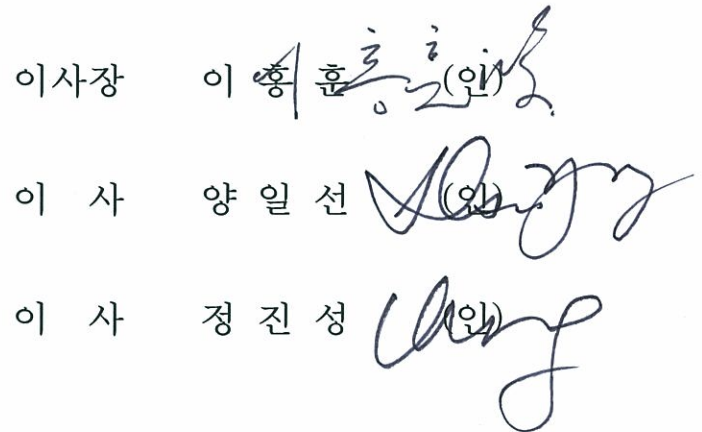 이사장 이 홍 훈 (인)
이 사 양 일 선 (인)
이 사 정 진 성 (인)